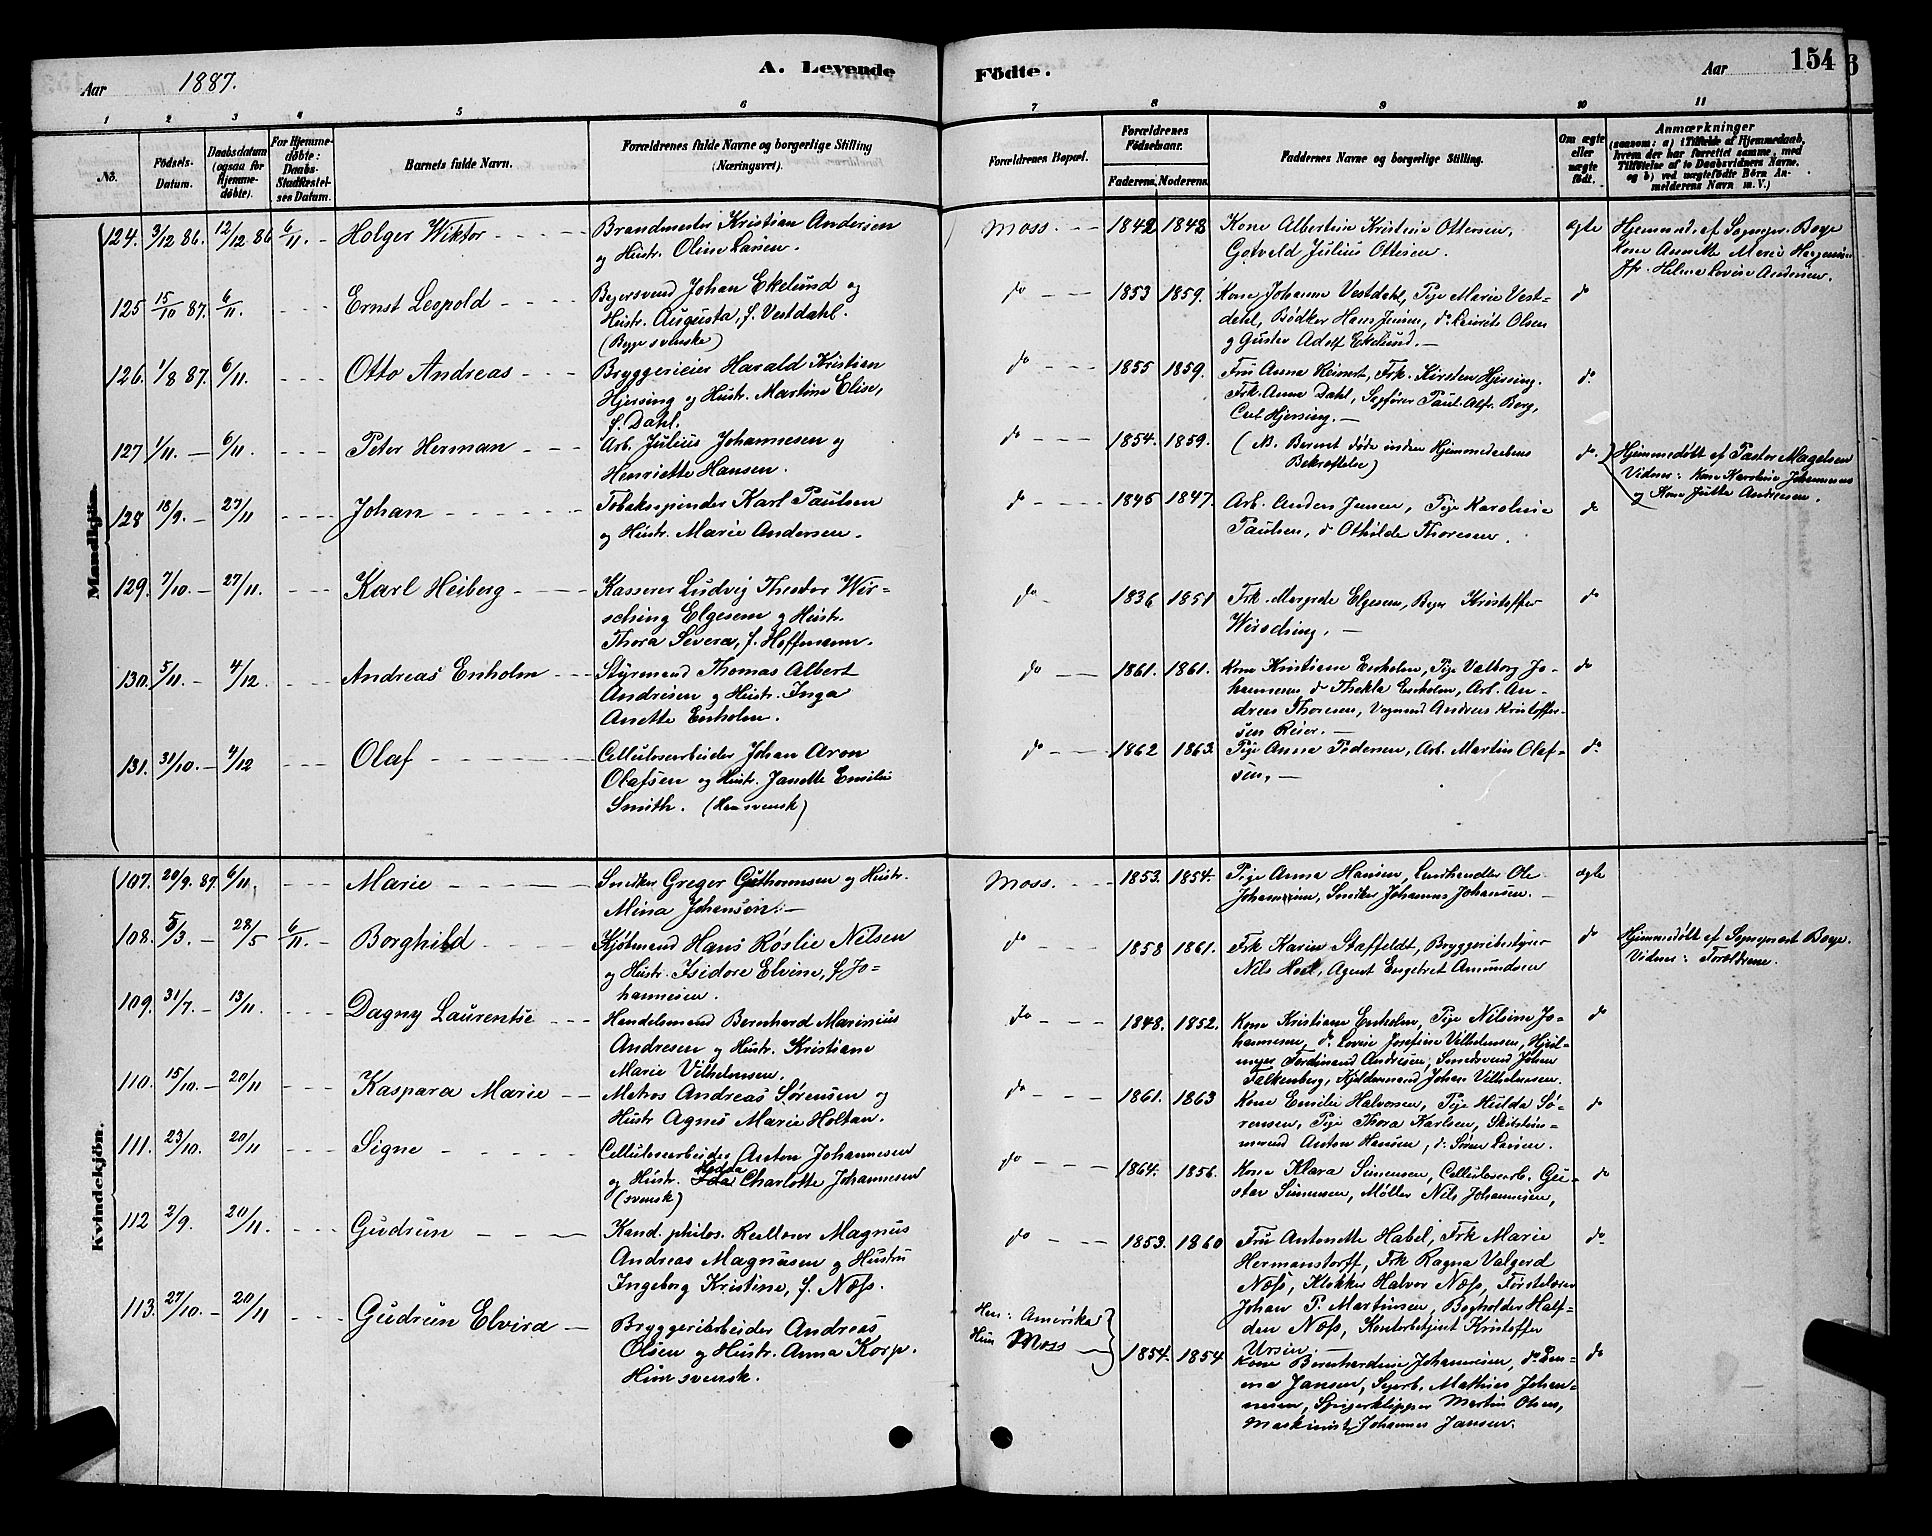 Aar 1887. A. Levende Födte. Aar 154
1 2 3 4 5 6 7 8 9 10 11
No. Födsels-Datum. Daabsdatum (ogsaa for Hjemmedöbte). For Hjemmedöbte: Daabs-Stadfæstelses Datum. Barnets fulde Navn. Forældrenes fulde Navne og borgerlige Stilling (Næringsvei). Forældrenes Bopæl. Forældrenes Födselsaar. Faderens. Moderens. Faddernes Navne og borgerlige Stilling. Om ægte eller uægte födt. Anmærkninger
(saasom: a) i Tilfælde af Hjemmedaab, hvem der har forrettet samme, med Tilföielse af to Daabsvidners Navne, og b) ved uægtefödte Börn Anmelderens Navn m. V.)
Mandkjön.
124. 3/12 86. 12/12 86 6/11. Holger Wiktor Brandmester Kristian Andersen Moss. 1842 1848 Kone Albertine Kristine Ottersen, ægte Hjemmed. af Sognepr. Borge
og Hustr. Oline Larsen. Gotveld Julius Ottesen. Kone Annette Marie
Jfr. Helma Lovise Andersen.
125 15/10 87. 6/11. Ernst Leopold Bogersvend Johan Ekelund og do 1853 1859. Kone Johanne Vestdahl, Pige Marie Vest- do
Hustr. Augusta, f. Vestdahl. dahl, Bødker Hans Jensen, do Laurits Olsen
(Begge svenske) og Gustav Adolf Ekelund.
126. 1/8 87. 6/11. Otto Andreas Bryggerieier Harald Kristian do 1855 1859. Fru Anna Heinert, Frk. Kirsten Hjersing. do
Hjersing og Hustr. Martine Elise, Frk. Anna Dahl, Paul Alfr. Borg,
f. Dahl. Carl Hjersing.
127 1/11. 6/11. Peter Herman Arb. Julius Johannesen og do 1854. 1859. (NB. Barnet døde inden Hjemmedaabens do Hjemmedøbt af Pastor Magelsen
Henriette Hansen. Bekræftelse) Vidner: Kone Karoline Johannesen
og Kone Jutta Andresen.
128 18/9. 27/11 Johan Tobaksspinder Karl Paulsen do 1845 1847. Arb. Anders Jensen, Pige Karoline do
og Hustr. Marie Andersen. Paulsen, do Othilde Thoresen.
129. 7/10. 27/11. Karl Heiberg Kasserer Ludvig Theodor Wir- do 1836 1851 Frk. Margrete Elgesem, Kristoffer do
sching Elgesem og Hustr. Wirsching.
Thora Severa, f. Hoffmann.
130. 5/11. 4/12 Andreas Enholm Styrmand Thomas Albert do 1861. 1861. Kone Kristiane Enholm, Pige Valborg Jo- do
Andresen og Hustr. Inga hannesen do Thekla Enholm, Arb. An-
Anette Enholm. dreas Thoresen, Vognmd Andreas Kristoffer-
sen Reier.
131. 31/10. 4/12 Olaf Cellulosearbeider Johan Aron do 1862 1863. Pige Anna Pedersen, Arb. Martin Olaf- do
Olafsen og Hustr. Janette Emilie sen.
Smith. (Han svensk)
Kvindekjön.
107. 20/9. 87. 6/11. Marie Snedker Greger Guthormsen og Hustr. Moss. 1853. 1854. Pige Anna Hansen, Landhandler Ole ægte
Mina Johansen. Johannesen, Snedker Johannes Johansen.
108. 5/3. 28/5 6/11. Borghild Kjøbmand Hans Røslie Nilsen do 1858 1861. Frk Karin Staffeldt, Bryggeribestyrer do Hjemmedøbt af Sognepræst Borge.
og Hustr. Isidore Elvine, f. Jo- Nils Agent Engebret Amundsen Vidner: Forældrene.
hannesen.
109. 31/7. 13/11. Dagny Laurentse Handelsmand Bernhard Marinius do 1848. 1852. Kone Kristiane Enholm, Pige Nilsine Jo- do
Andresen og Hustr. Kristiane hannesen, do Lovise Josefine Vilhelmsen,
Marie Vilhelmsen. Ferdinand Andresen, Smedsvend Johan
Falkenberg, Kjeldermand Johan Vilhelmsen.
110. 15/10. 20/11 Kaspara Marie Matros Andreas Sørensen og do 1861. 1863 Kone Emilie Halvorsen, Pige Hulda Sø- do
Hustr Agnes Marie Holtan. rensen, Pige Thora Karlsen,
mand Anton Hansen, do Søren Larsen.
111. 23/10. 20/11 Signe Cellulosearbeider Anton Johannesen do 1864. 1856. Kone Klara Simensen, Cellulosearb. Gu- do
og Hustr. Hedda Charlotte Johannesen stav Simensen, Møller Nils Johannesen,
(svensk)
112 2/9. 20/11. Gudrun Kand. philos. Realløver Magnus do 1853. 1860 Fru Antonette Habel, Frk Marie do
Andreas Magnusen og Hustru Hermanstorff, Frk Ragna Valgerd
Ingeborg Kristine, f. Næss. Næss, Klokker Halvor Næss, Førstelærer
Johan P. Martinsen, Bogholder Half-
dan Næss, Kontorbetjent Kristoffer
Ursin.
113. 27/10. 20/11 Gudrun Elvira Bryggeriarbeider Andreas Han: Amerika 1854. 1854 Kone Bernhardine Johannesen, do Em- do
Olsen og Hustr. Anna Korp. Hun Moss ma Jansen, Mathias Johan-
Hun svensk. nesen, Spigerklipper Martin Olsen,
Maskinist Johannes Jansen.